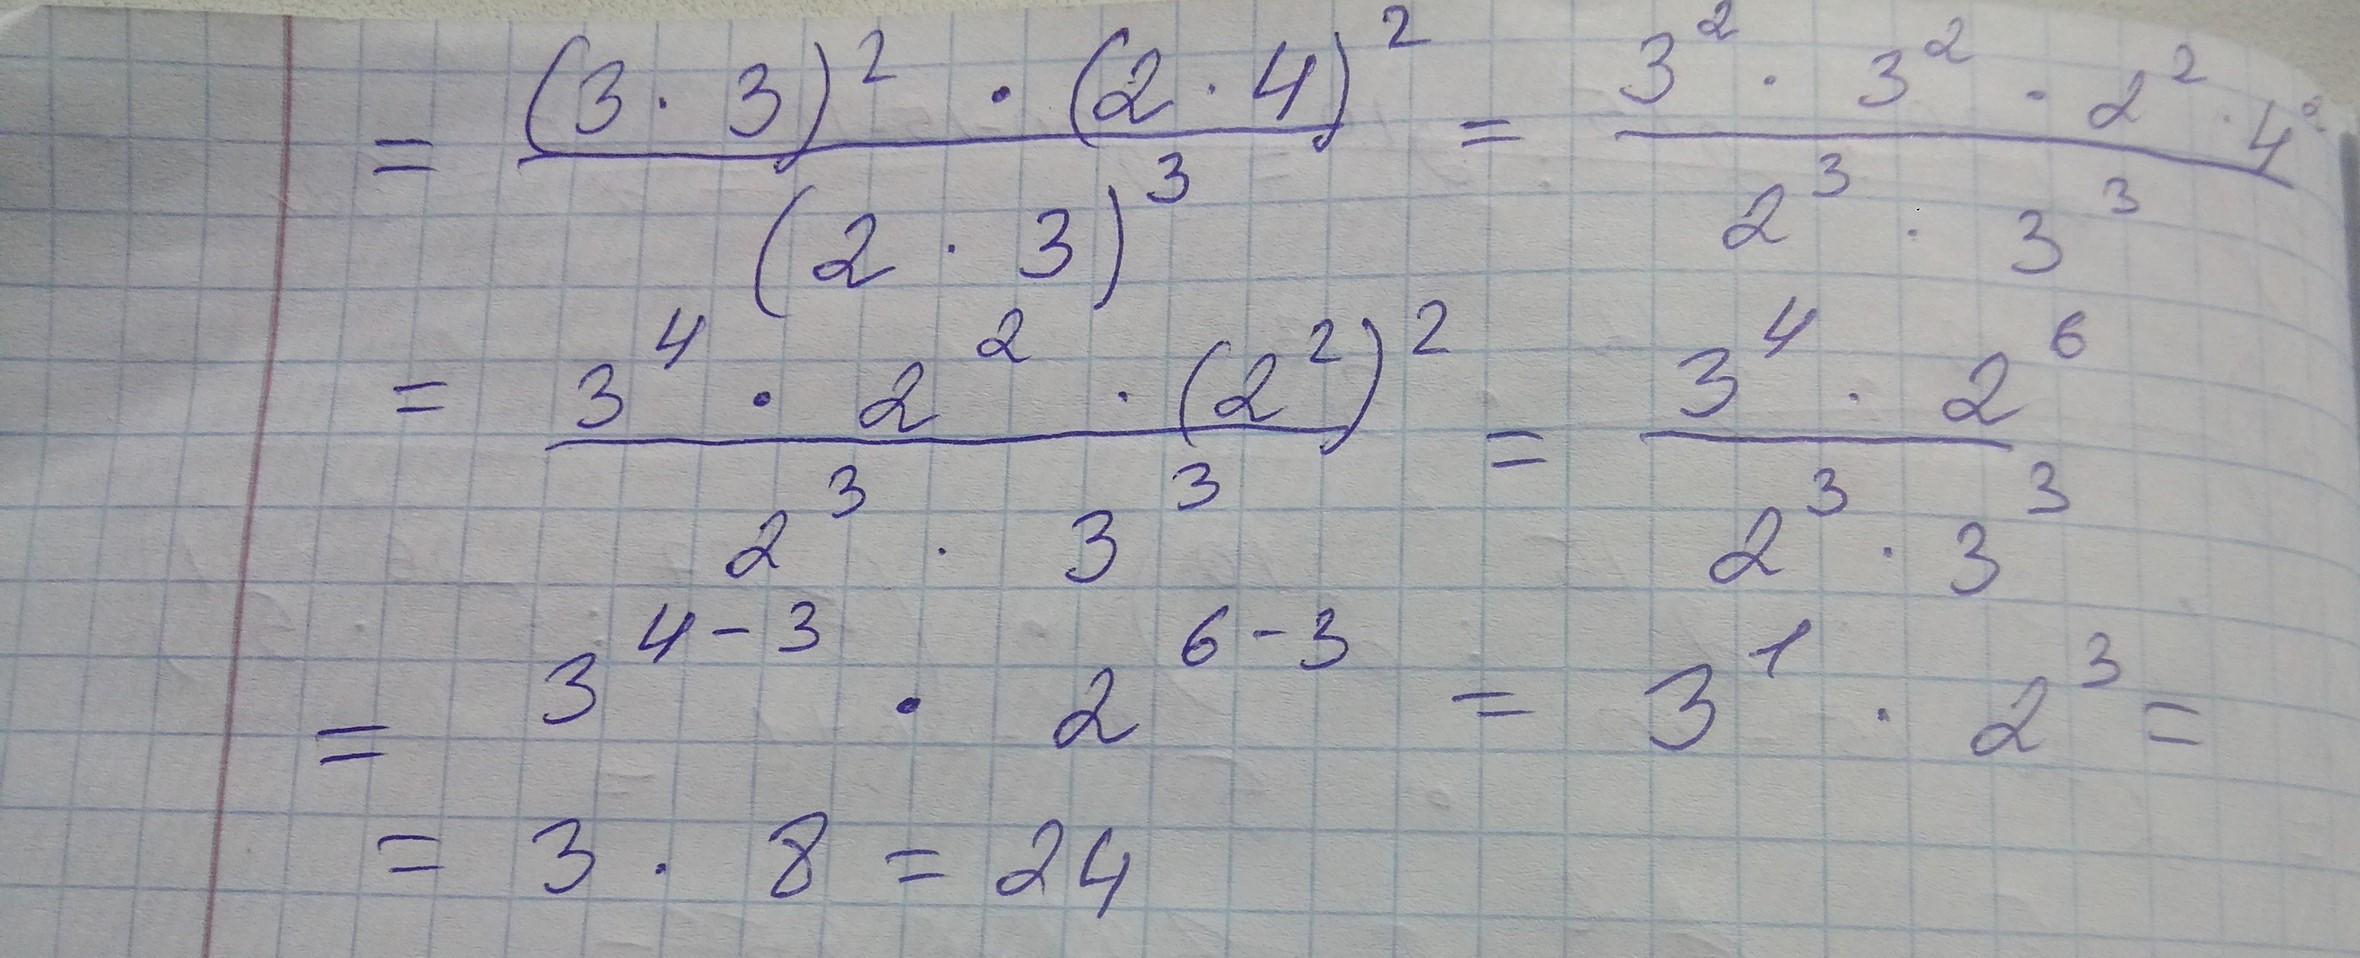 = (3 · 3)² · (2 · 4)² / (2 · 3)³ = 3² · 3² · 2² · 4² / 2³ · 3³
= 3⁴ · 2² · (2²)² / 2³ · 3³ = 3⁴ · 2⁶ / 2³ · 3³
= 3⁴⁻³ · 2⁶⁻³ = 3¹ · 2³ =
= 3 · 8 = 24